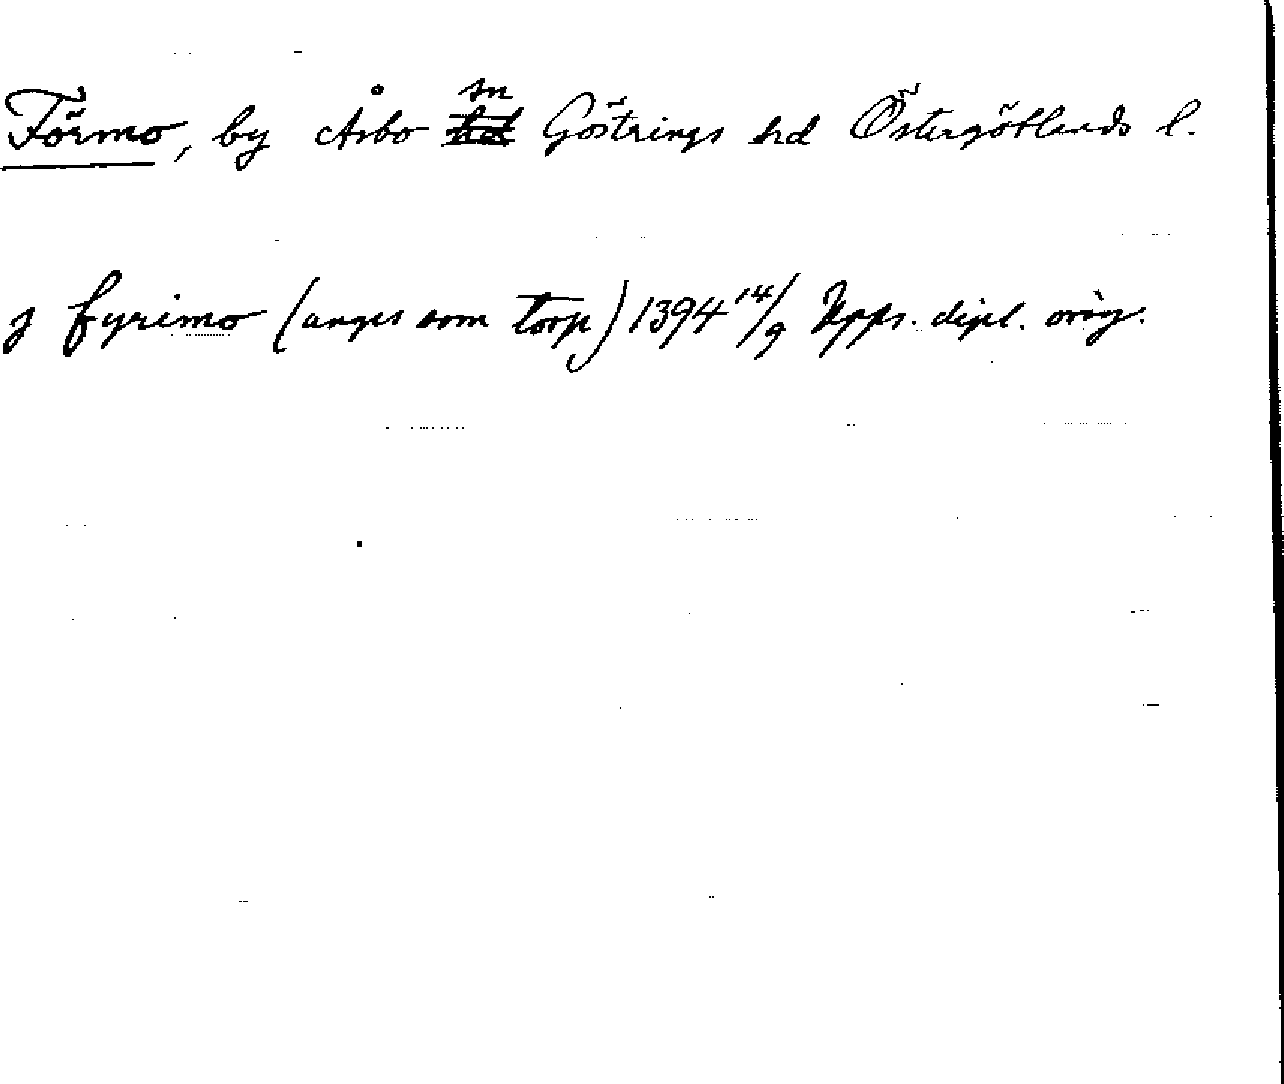 Förmo, by Åsbo sn Göstrings hd Östergötlands l.
j fyrimo (anges som torp) 1394 14/9 Upps. dipl. orig.